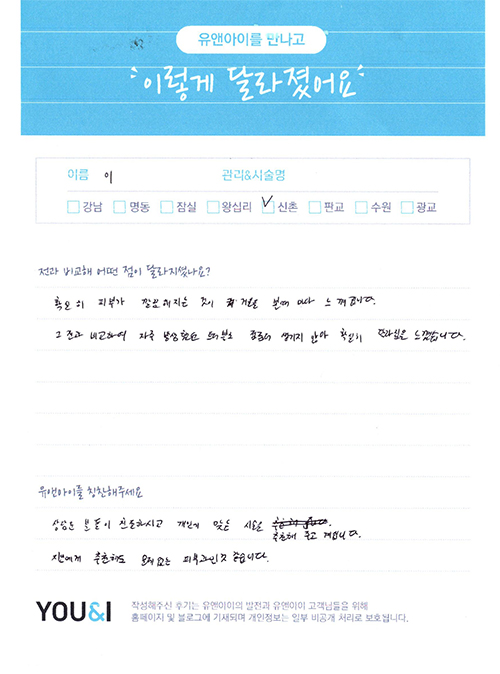 유앤아이를 만나고
이렇게 달라졌어요
이름 이 관리&시술명
강남 명동 잠실 왕십리 신촌 판교 수원 광교
전과 비교해 어떤 점이 달라지셨나요?
확실히 피부가 좋아지는 것이 거울을 볼때 마다 느껴집니다.
그 전과 비교하여 자주 발생했던 트러블도 생기지 않아 확실히 달라짐을 느꼈습니다.
유앤아이를 칭찬해주세요
상담은 분들이 친절하시고 개인에 맞는 시술을
추천해 주고 계십니다.
지인에게 추천해도 피부과인것 같습니다.
YOU&I 작성해주신 후기는 유앤아이의 발전과 유앤아이 고객님들을 위해
홈페이지 및 블로그에 기재되며 개인정보는 일부 비공개 처리로 보호됩니다.